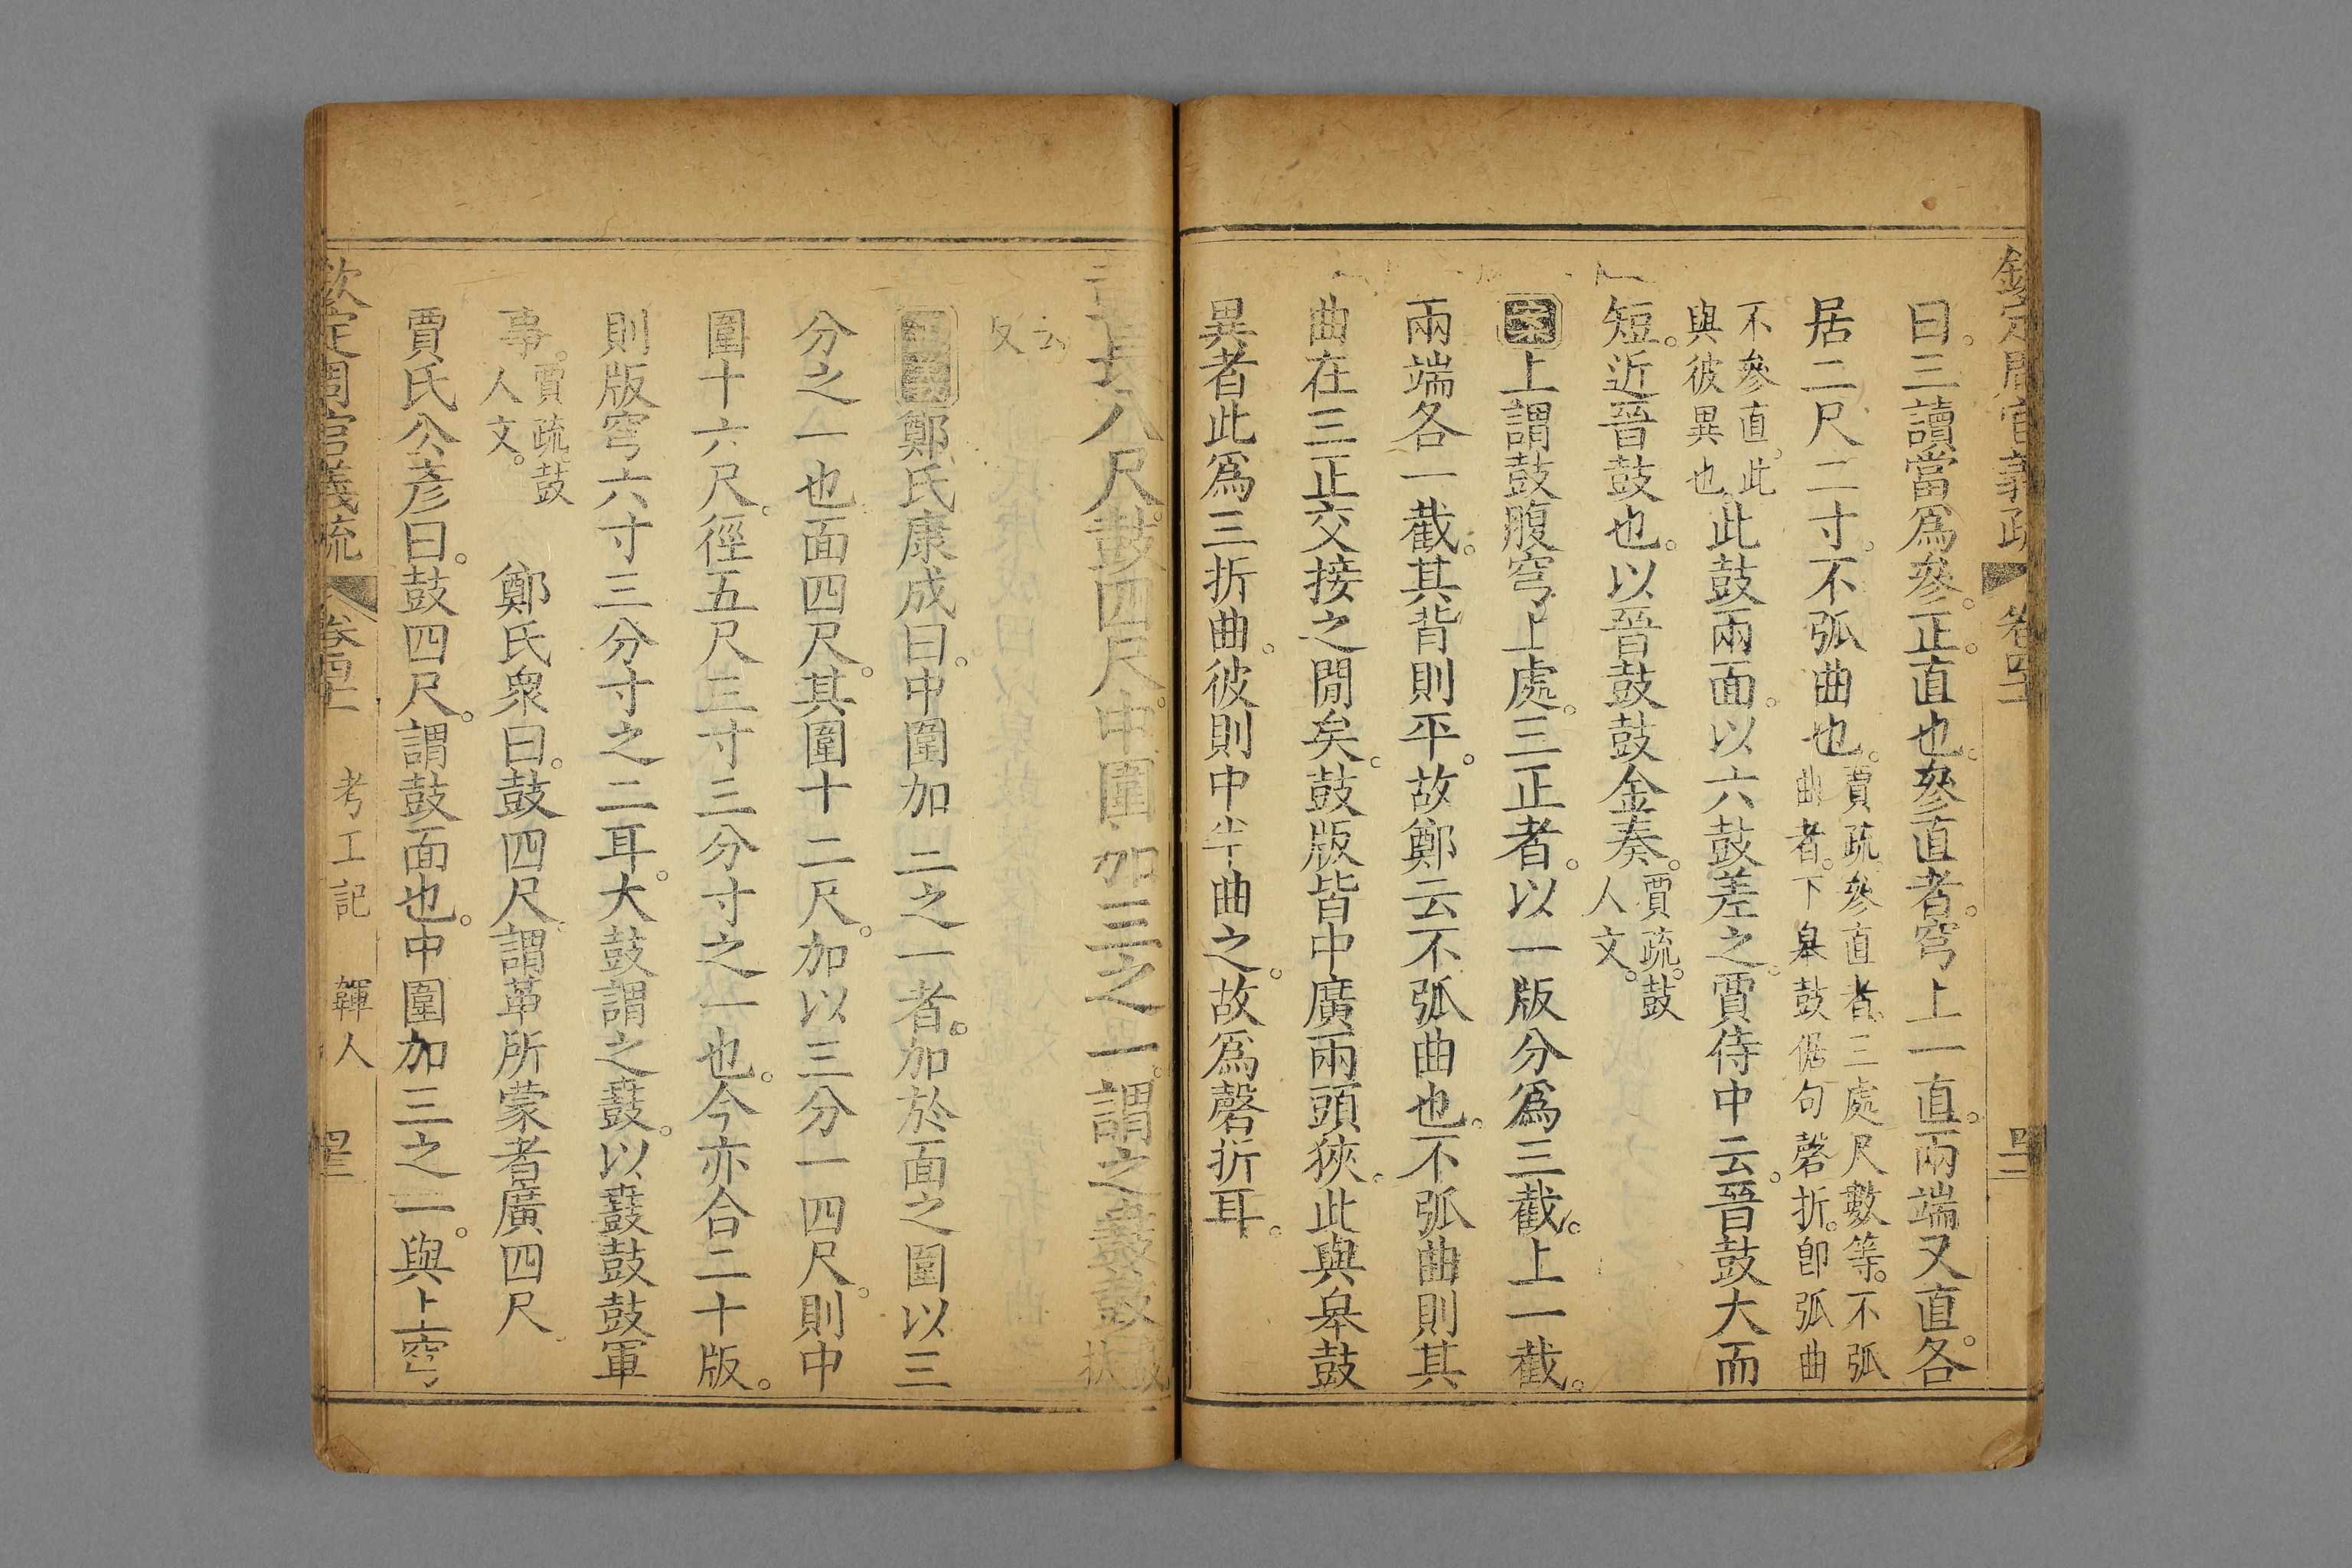 欽定周官義疏 卷四十
曰。三讀當爲參。正。直也。參直者。穹上一直。兩端又直。各
居二尺二寸。不弧曲也。賈疏。參直者。三處尺數等。不弧
曲者。下臯鼓倨句磬折。卽弧曲
不參直。此
與彼異也。此鼓兩面。以六鼓差之。賈侍中云。晉鼓大而
短。近晉鼓也。以晉鼓鼓金奏。賈疏。鼓
人文。
案上謂鼓腹穹上處。三正者。以一版分爲三截。上一截。
兩端各一截。其背則平。故鄭云不弧曲也。不弧曲則其
曲在三正交接之閒矣。鼓版皆中廣兩頭狹。此與臯鼓
異者此爲三折曲。彼則中半曲之。故爲磬折耳。
鼓長八尺。鼓四尺。中圍加三之一。謂之鼖鼓
鄭氏康成曰。中圍加三之一者。加於面之圍以三
分之一也。面四尺。其圍十二尺。加以三分一四尺。則中
圍十六尺。徑五尺三寸三分寸之一也。今亦合二十版。
則版穹六寸三分寸之二耳。大鼓謂之鼖。以鼖鼓鼓軍
事。賈疏。鼓
人文。 鄭氏衆曰。鼓四尺。謂革所蒙者廣四尺
賈氏公彥曰。鼓四尺。謂鼓面也。中圍加三之一。與上穹
欽定周官義疏 卷四十 考工記 韗人